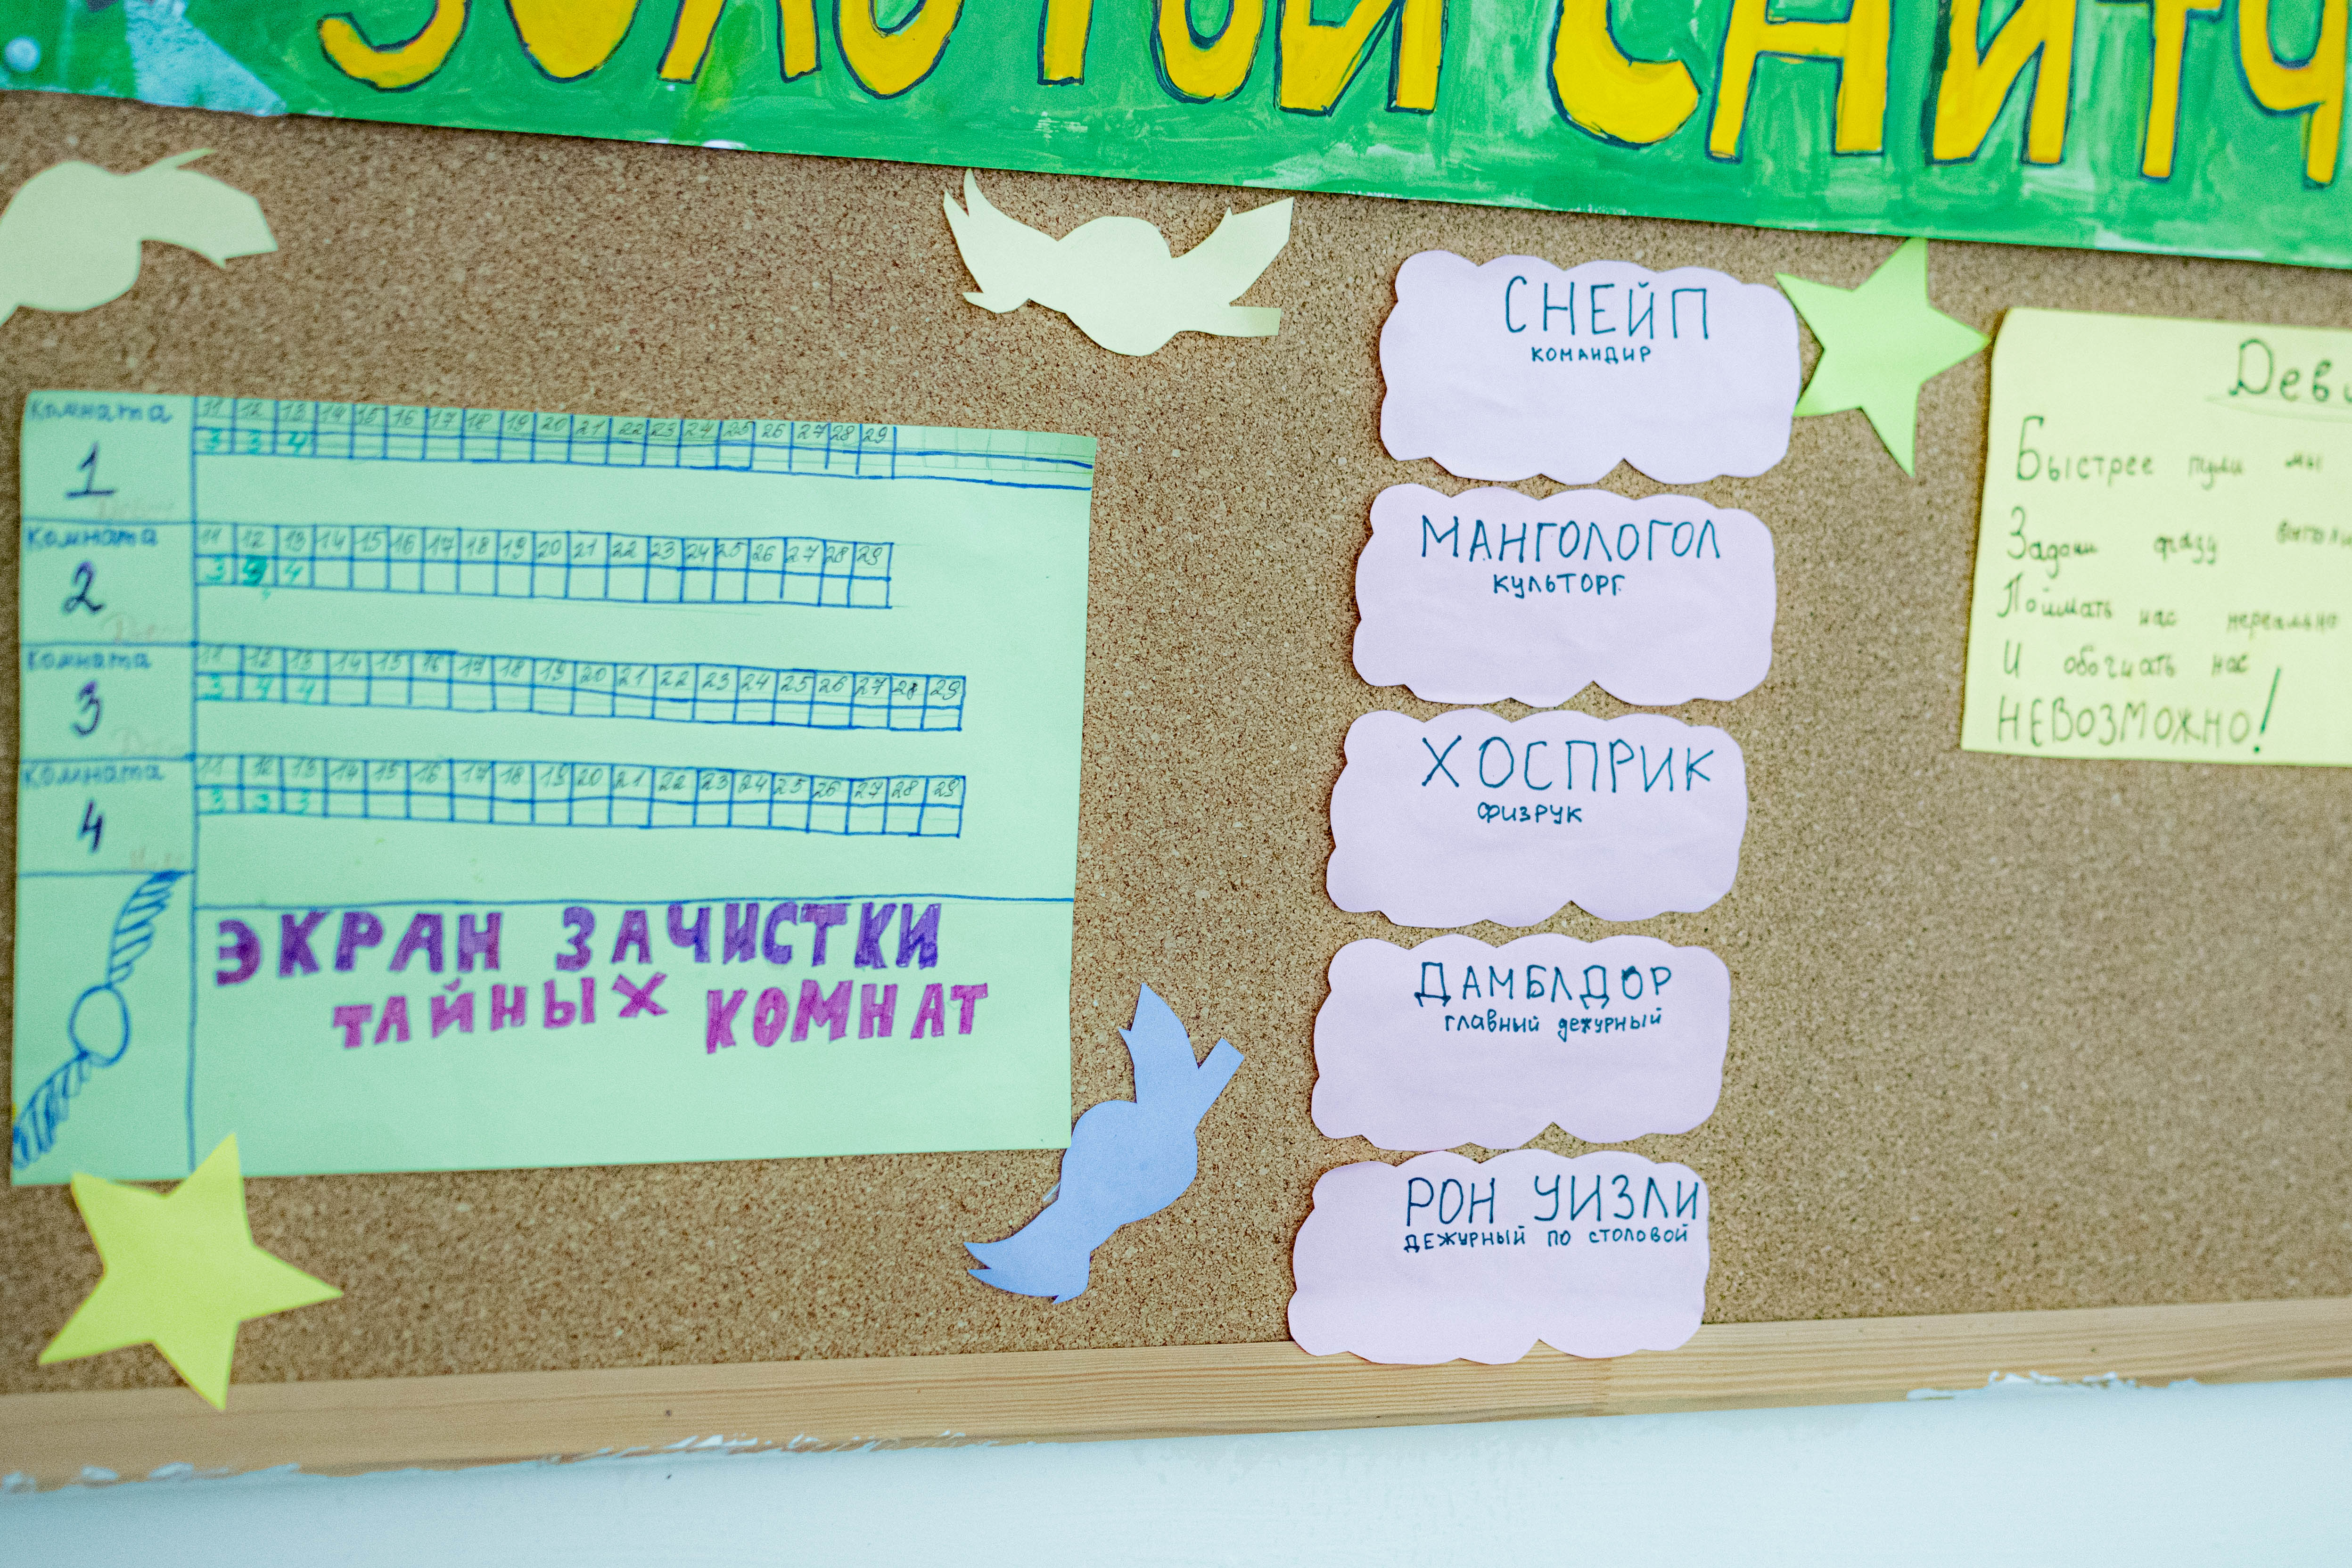 ЗОЛОТОЙ СНИТЧ
Комната 11 12 13 14 15 16 17 18 19 20 21 22 23 24 25 26 27 28 29
1 3 3 4
Комната 11 12 13 14 15 16 17 18 19 20 21 22 23 24 25 26 27 28 29
2 3 4
Комната 11 12 13 14 15 16 17 18 19 20 21 22 23 24 25 26 27 28 29
3 3 4 4
Комната 11 12 13 14 15 16 17 18 19 20 21 22 23 24 25 26 27 28 29
4 3 3 3
ЭКРАН ЗАЧИСТКИ
ТАЙНЫХ КОМНАТ
СНЕЙП
КОМАНДИР
МАНГОЛОГОЛ
КУЛЬТОРГ
ХОСПРИК
ФИЗРУК
ДАМБЛДОР
главный дежурный
РОН УИЗЛИ
ДЕЖУРНЫЙ ПО СТОЛОВОЙ
Дев
Быстрее пули мы
Задани фразу
Поймать нас нереально
И обогнать нас
НЕВОЗМОЖНО!